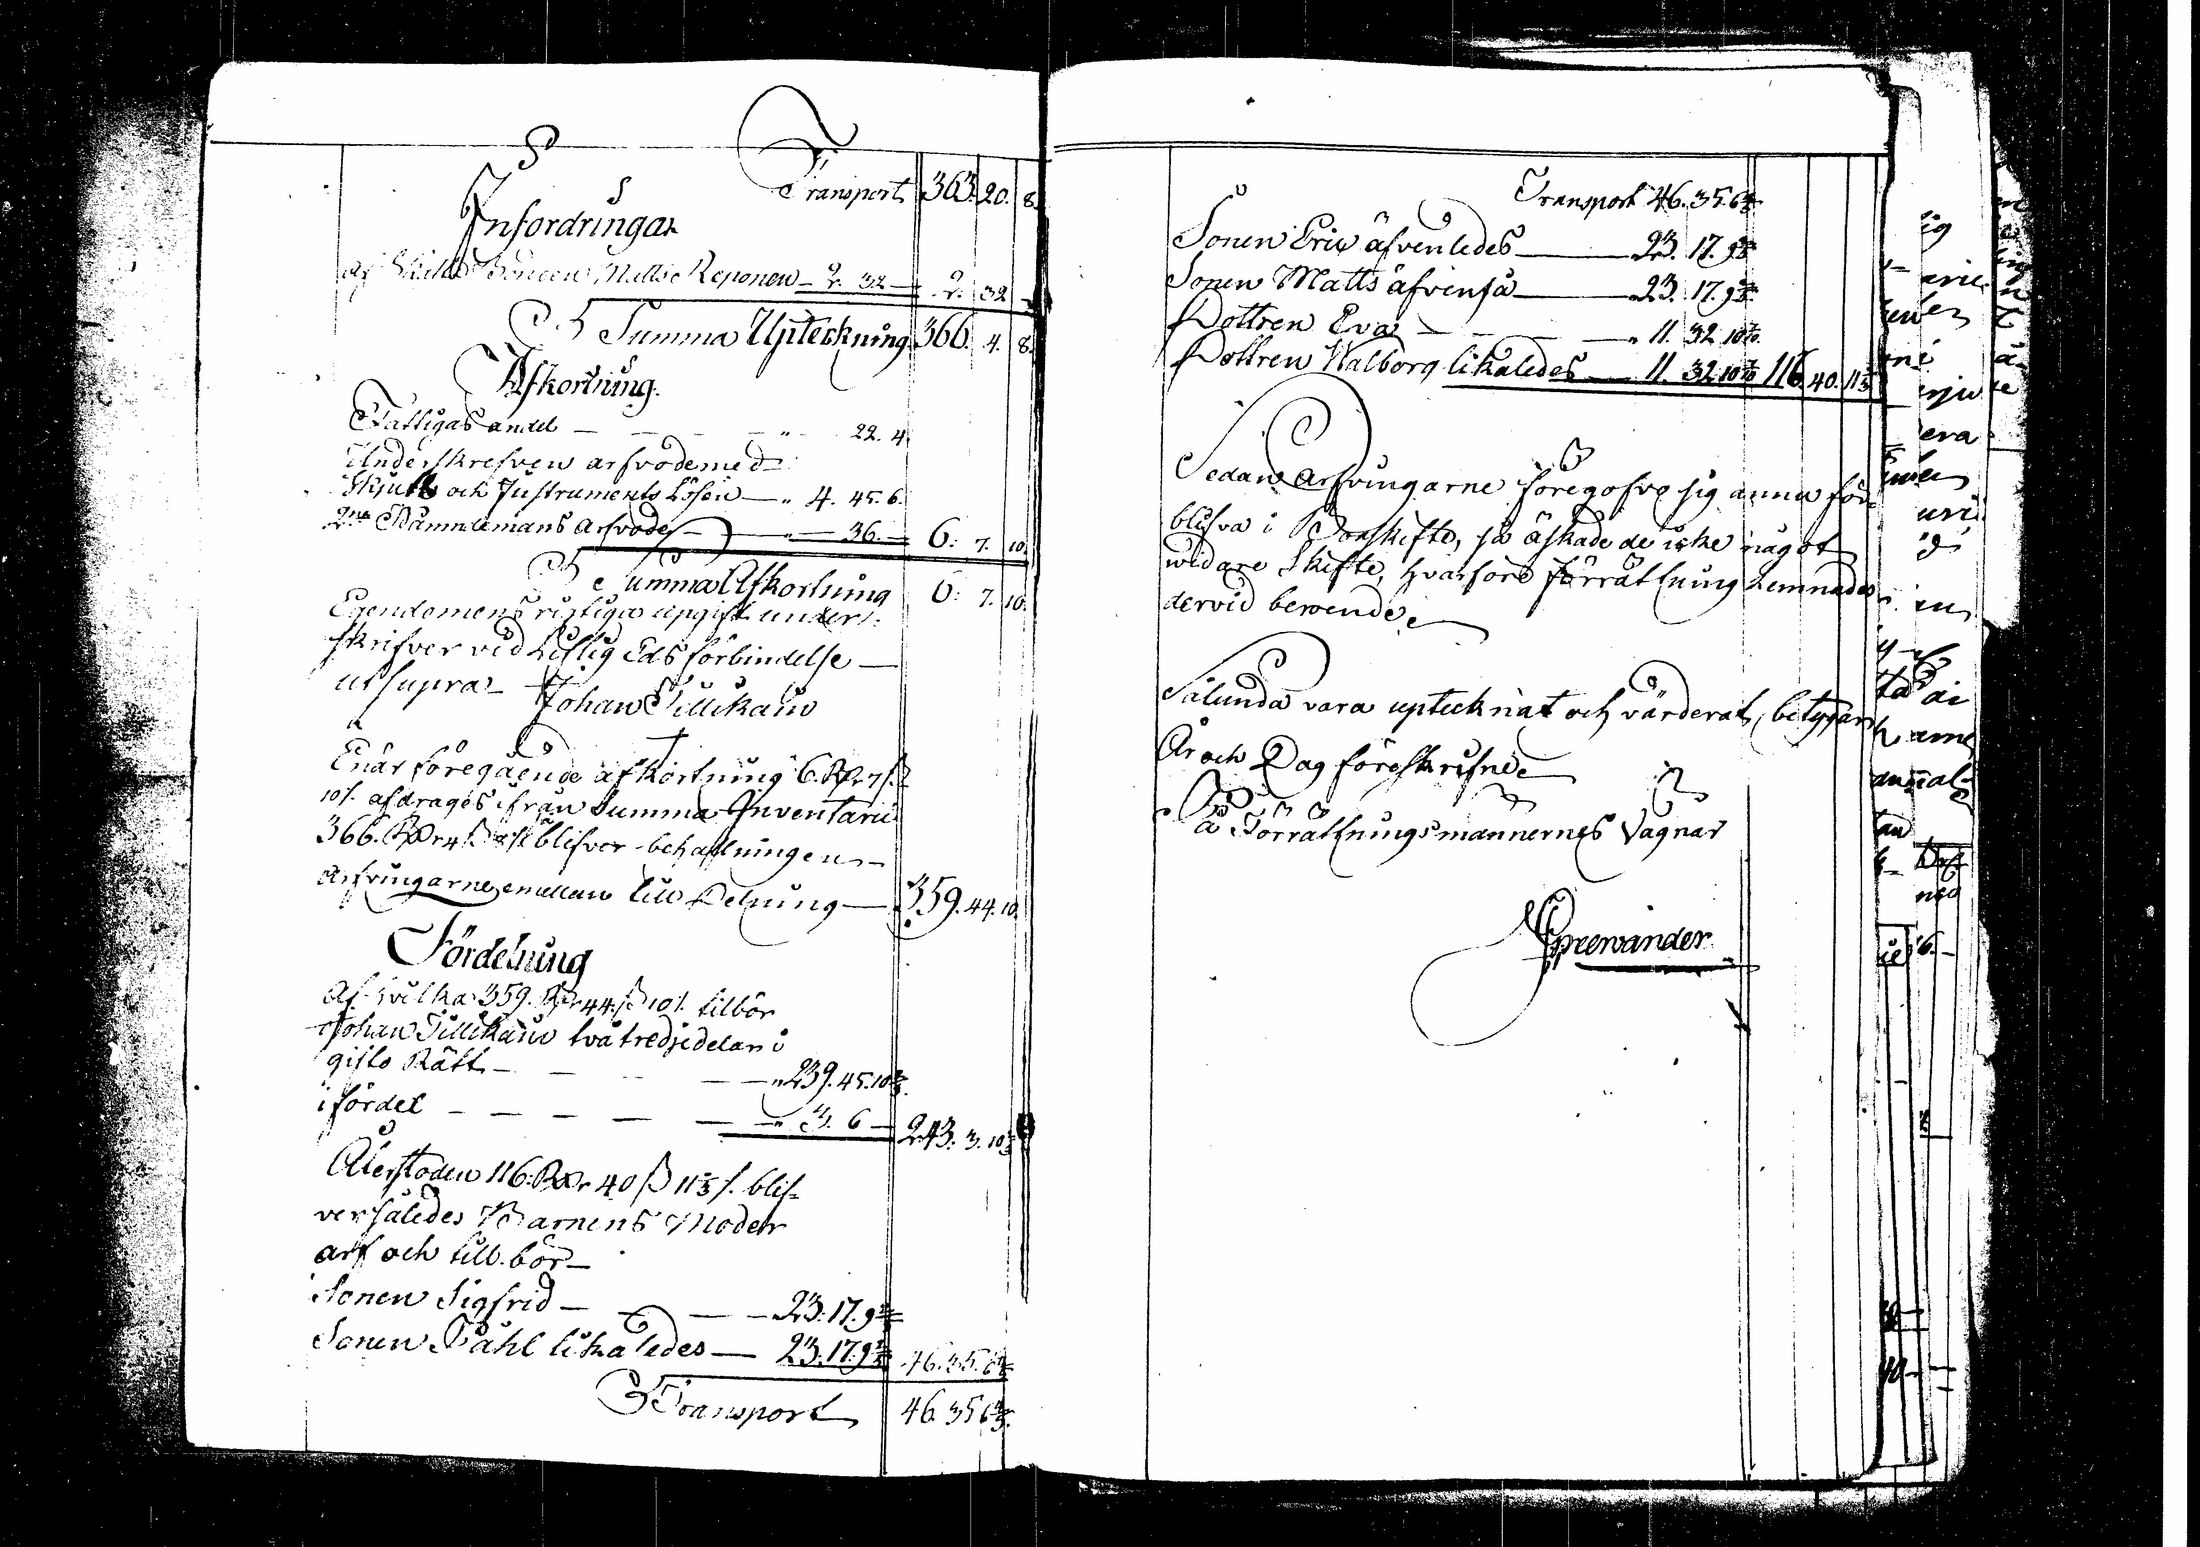 Transport 363. 20. 8.
Infordringar
af Mattss Reponen – 2. 32 — 2. 32 –
Summa Upteckning 366. 4. 8.
Afkortning.
Fattigas andel — — — — " 22. 4.
Underskrefven arfvode med
Skjutts och Instruments Lösen — " 4. 45. 6.
2ne Nämndemans Arfvode — " — 36. — 6: 7. 10.
Summa Afkortning 6: 7. 10.
Egendomens rigtiga upgift under-
skrifver vid Liflig Eds förbindelse —
ut supra – Johan Tillikain
Enär föregående afkortning 6. Rdr 7 ß
10 /. afdrages ifrån Summa Inventarii
366. Rdr 4 ß 8 /. blifver behållningen
Arfvingarne emellan till Delning — 359. 44. 10.
Fördelning
Af hvilka 359. Rdr 44. ß 10 /. tilbör
Johan Tillikain två tredjedelar i
gifto Rätt — — — — " 239. 45. 10 2/3.
i fördel — — — — — — " 3. 6 — 243. 3. 10 2/3
Återstoden 116. Rdr 40 ß 11 1/3 /. blif-
ver således Barnens Moder
arf och till bör —
Sonen Sigfrid — — — — 23. 17. 9
Sonen Påhl likaledes — 23. 17. 9 46. 35. 6
Transport 46. 35 6
Transport 46. 35. 6
Sonen Eric äfvenledes — 23. 17. 9
Sonen Matts äfvenså — 23. 17. 9
Dottren Eva — — — " 11. 32 10
Dottren Walborg likaledes — 11. 32 10 116. 40. 11 1/3
Sedan Arfvingarne föregofvo sig ännu för-
blifva i Borskifte, så äskade de icke något
widare Skifte, hvarföre förrättning lemnades
dervid beroende.
Sålunda vara uptecknat och värderat, betygar
År och Dag föreskrifne
På Förrättningsmannernes Vägnar
Spreewander